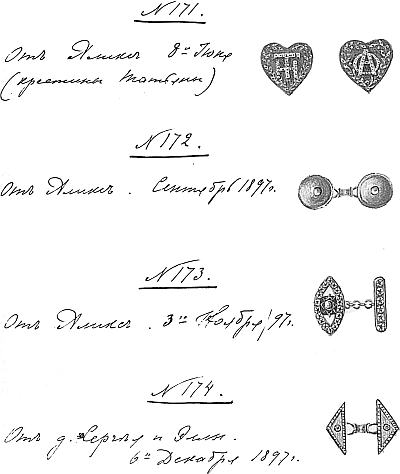 N 171.
Отъ Аликсъ 8го Iюня
(крестины Татьяны)
N 172.
Отъ Аликсъ. Сентябрь 1897г.
N 173.
Отъ Аликсъ. 3го Ноября, 97г.
N 174.
Отъ д. Сергѣя и Эллы.
6го Декабря 1897г.